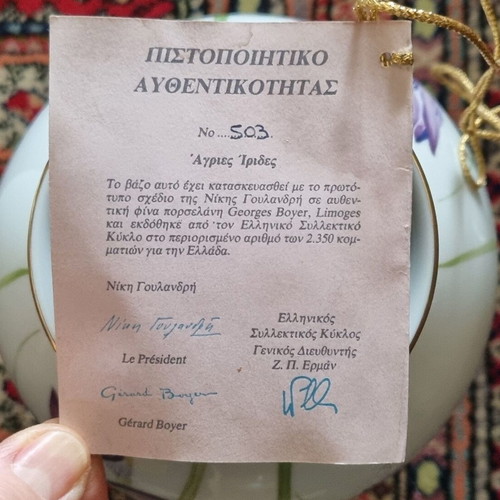 ΠΙΣΤΟΠΟΙΗΤΙΚΟ
ΑΥΘΕΝΤΙΚΟΤΗΤΑΣ
No ....503.
Ἄγριες Ἴριδες
Το βάζο αυτό έχει κατασκευασθεί με το πρωτό-
τυπο σχέδιο της Νίκης Γουλανδρή σε αυθεν-
τική φίνα πορσελάνη Georges Boyer, Limoges
και εκδόθηκε από τον Ελληνικό Συλλεκτικό
Κύκλο στο περιορισμένο αριθμό των 2.350 κομ-
ματιών για την Ελλάδα.
Νίκη Γουλανδρή
Νίκη Γουλανδρή
Le Président
Gérard Boyer
Gérard Boyer
Ελληνικός
Συλλεκτικός Κύκλος
Γενικός Διευθυντής
Ζ. Π. Ερμάν